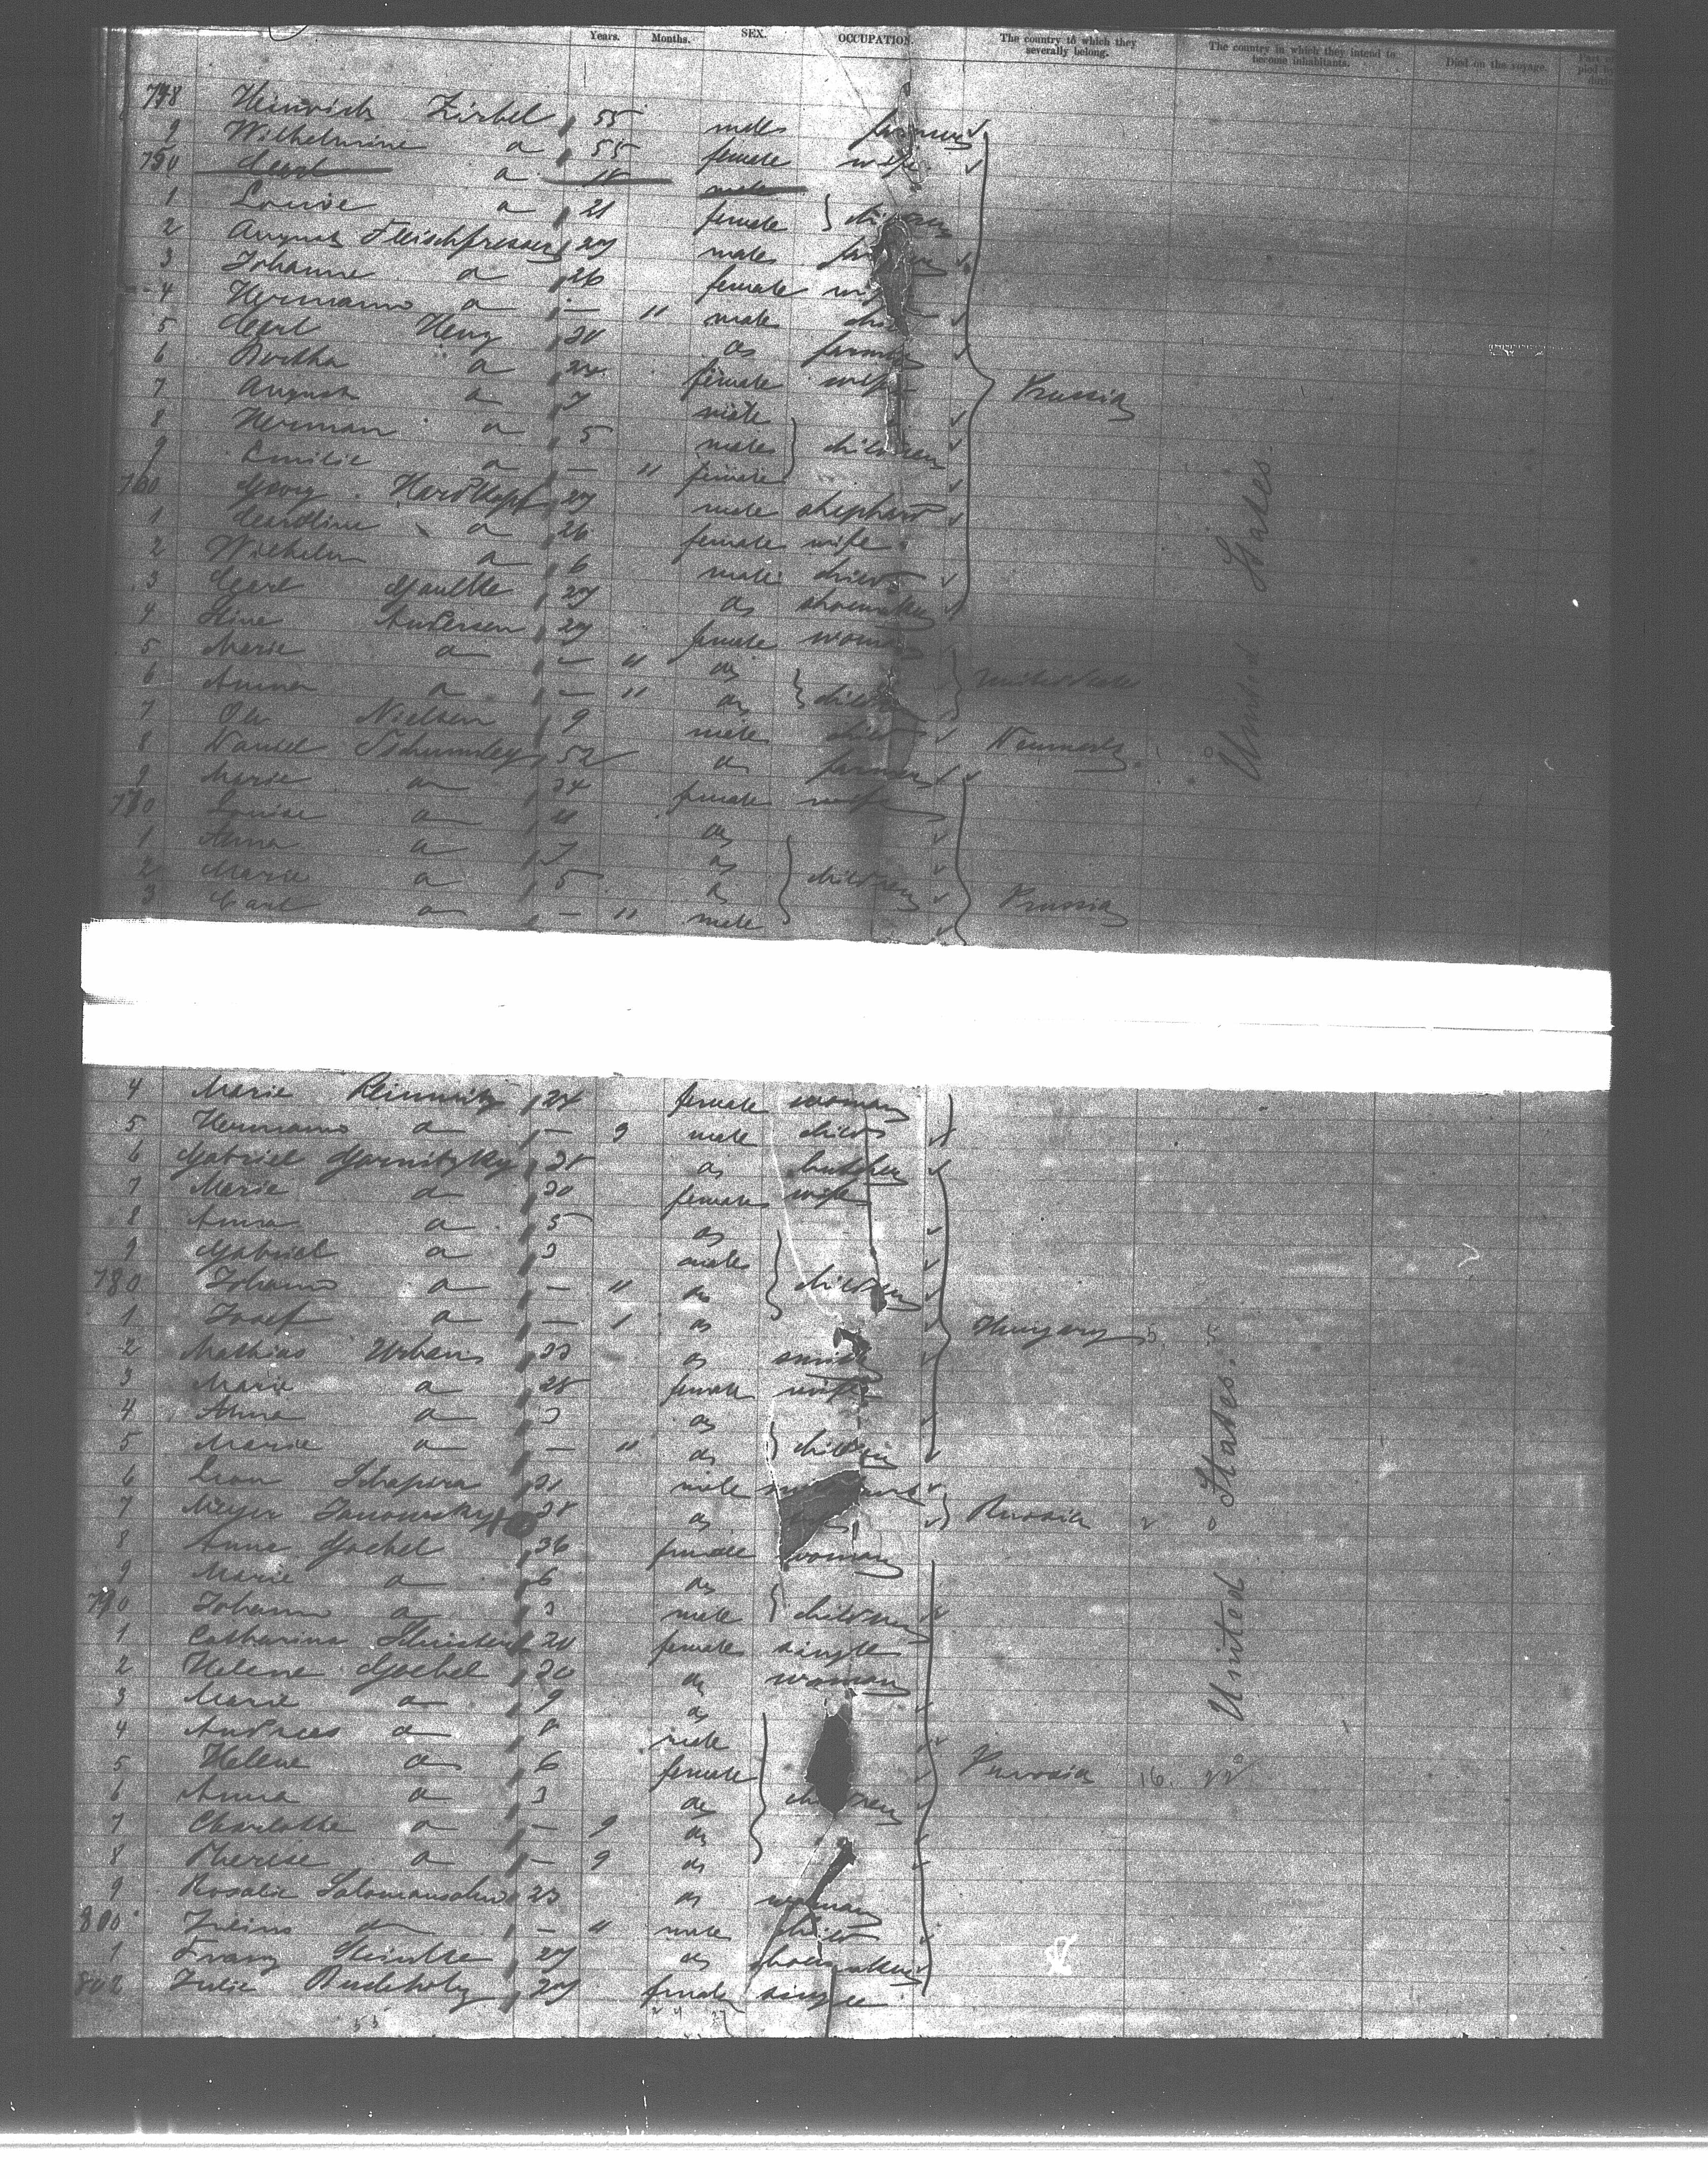 Years. Months. SEX. OCCUPATION. The country to which they severally belong. The country in which they intend to become inhabitants. Died on the voyage.
748 Heinrich Zirbel 55 male farmer
9 Wilhelmine a 55 female wife
750 Carl a 18 male
1 Louise a 21 female children
2 August Fleischfresser 29 male
3 Johanne a 26 female
4 Hermann a — 11 male
5 Carl Henz do farmer
6 Bertha a 24 female wife
7 August a 7 male
8 Herman a 5 male children Prussia
9 Emilie a — 11 female
760 Georg Hardtkopf 29 male shepherd
1 Caroline a 26 female wife
2 Wilhelm a 6 male child
3 Carl Gaulke 29 do shoemaker
4 Stine Andersen 29 female woman
5 Marie a — 11 do
6 Anna a — 11 do children United States
7 Ole Nielsen 9 male child
8 52 do farmer
9 Marie a 34 female wife
770 Louise a 11 do
1 Anna a 7 do
2 Marie a 5 do children Prussia
3 Carl a — 11 male
United States.
4 Marie 24 female woman
5 Hermann a — 9 male child
6 Gabriel Garnitzky 28 do butcher
7 Marie a 30 female wife
8 Anna a 5 do
9 Gabriel a 3 male
780 Johann a — 11 do children
1 Josef a — 1 do Hungary 5 5
2 Mathias Urban 33 do smith
3 Marie a 28 female wife
4 Anna a 3 do
5 Marie a — 11 do children
6 Leon Schapira 21 male
7 Meyer Janowsky 28 do Russia 2 0
8 Anna Goebel 36 female woman
9 Marie a 6 do
790 Johann a 3 male children
1 Catharina 20 female single
2 Helene Goebel 30 do woman
3 Marie a 9 do
4 Andreas a 8 male
5 Helene a 6 female Prussia 16. 22
6 Anna a 3 do children
7 Charlotte a — 9 do
8 Therese a — 9 do
9 Rosalie Salomansohn 23 do woman
800 Julius a — 11 male child
1 Franz 29 do shoemaker
802 Julie Budeholz 29 female single
United States.